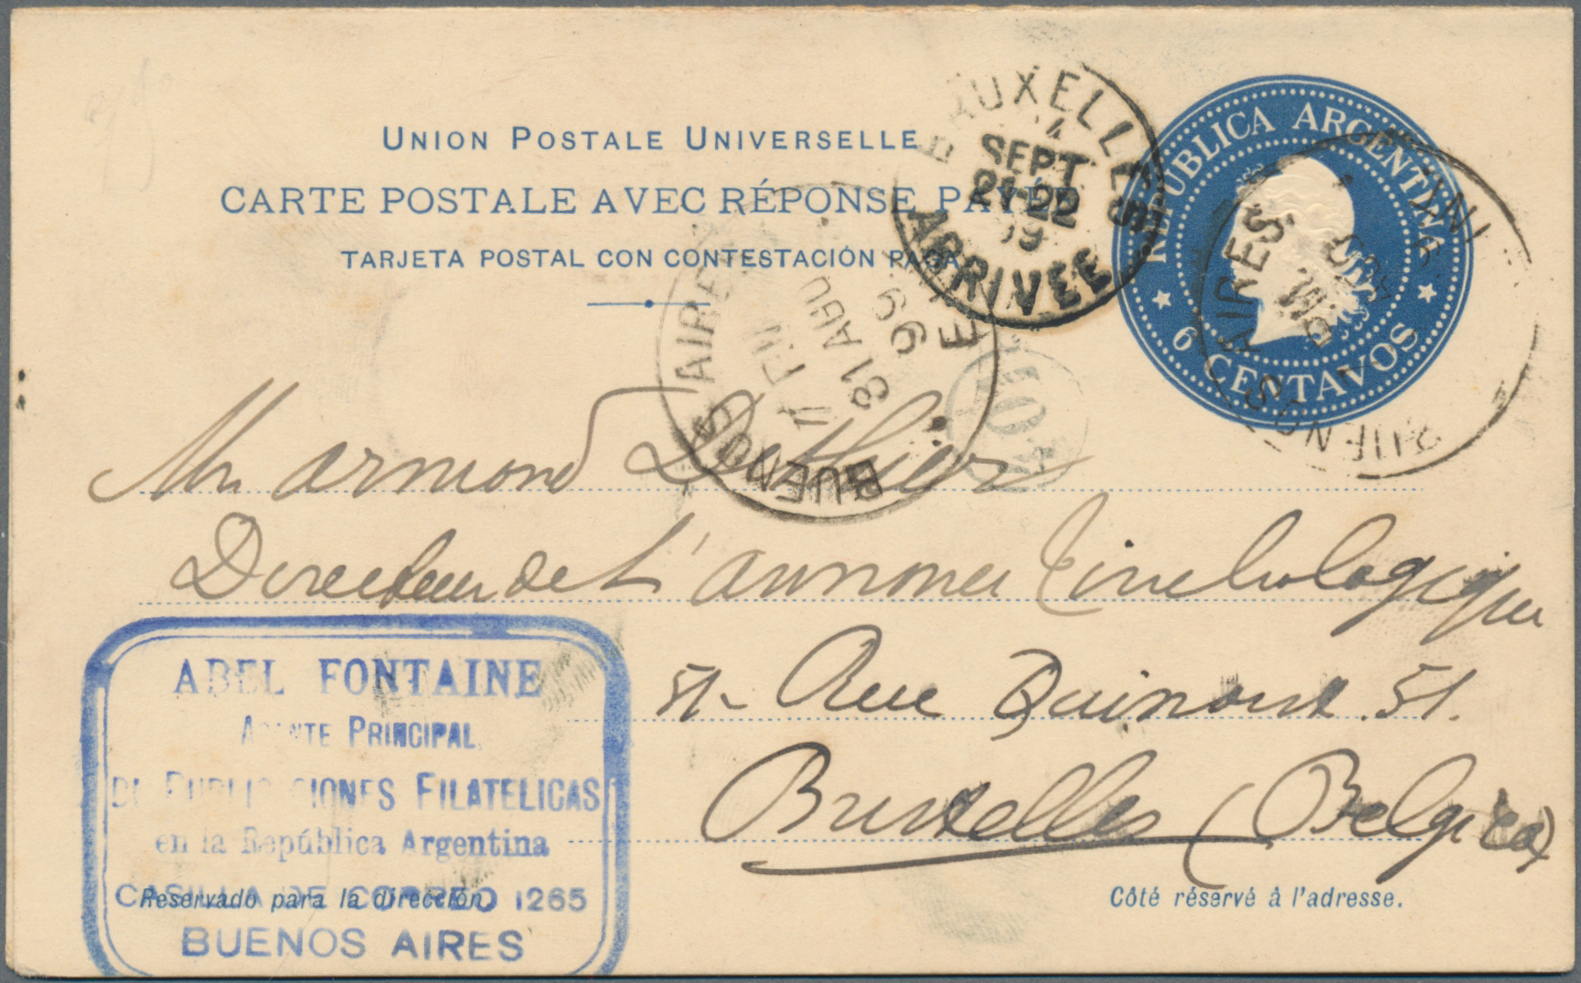 UNION POSTALE UNIVERSELLE
CARTE POSTALE AVEC RÉPONSE PAYÉE
TARJETA POSTAL CON CONTESTACIÓN PAGA
REPUBLICA ARGENTINA
6 CENTAVOS
BRUXELLES
4
SEPT
21-22
ARRIVÉE
BUENOS AIRES
31 AGO
99
BUENOS AIRES
Mr Armond
Directeur de L'annonce Timbrologique
51- Rue 51.
Bruxelles (Belgica)
ABEL FONTAINE
AGENTE PRINCIPAL
DE PUBLICACIONES FILATELICAS
en la República Argentina
CASILLA DE CORREO 1265
BUENOS AIRES
Reservado para la dirección.
Côté réservé à l'adresse.